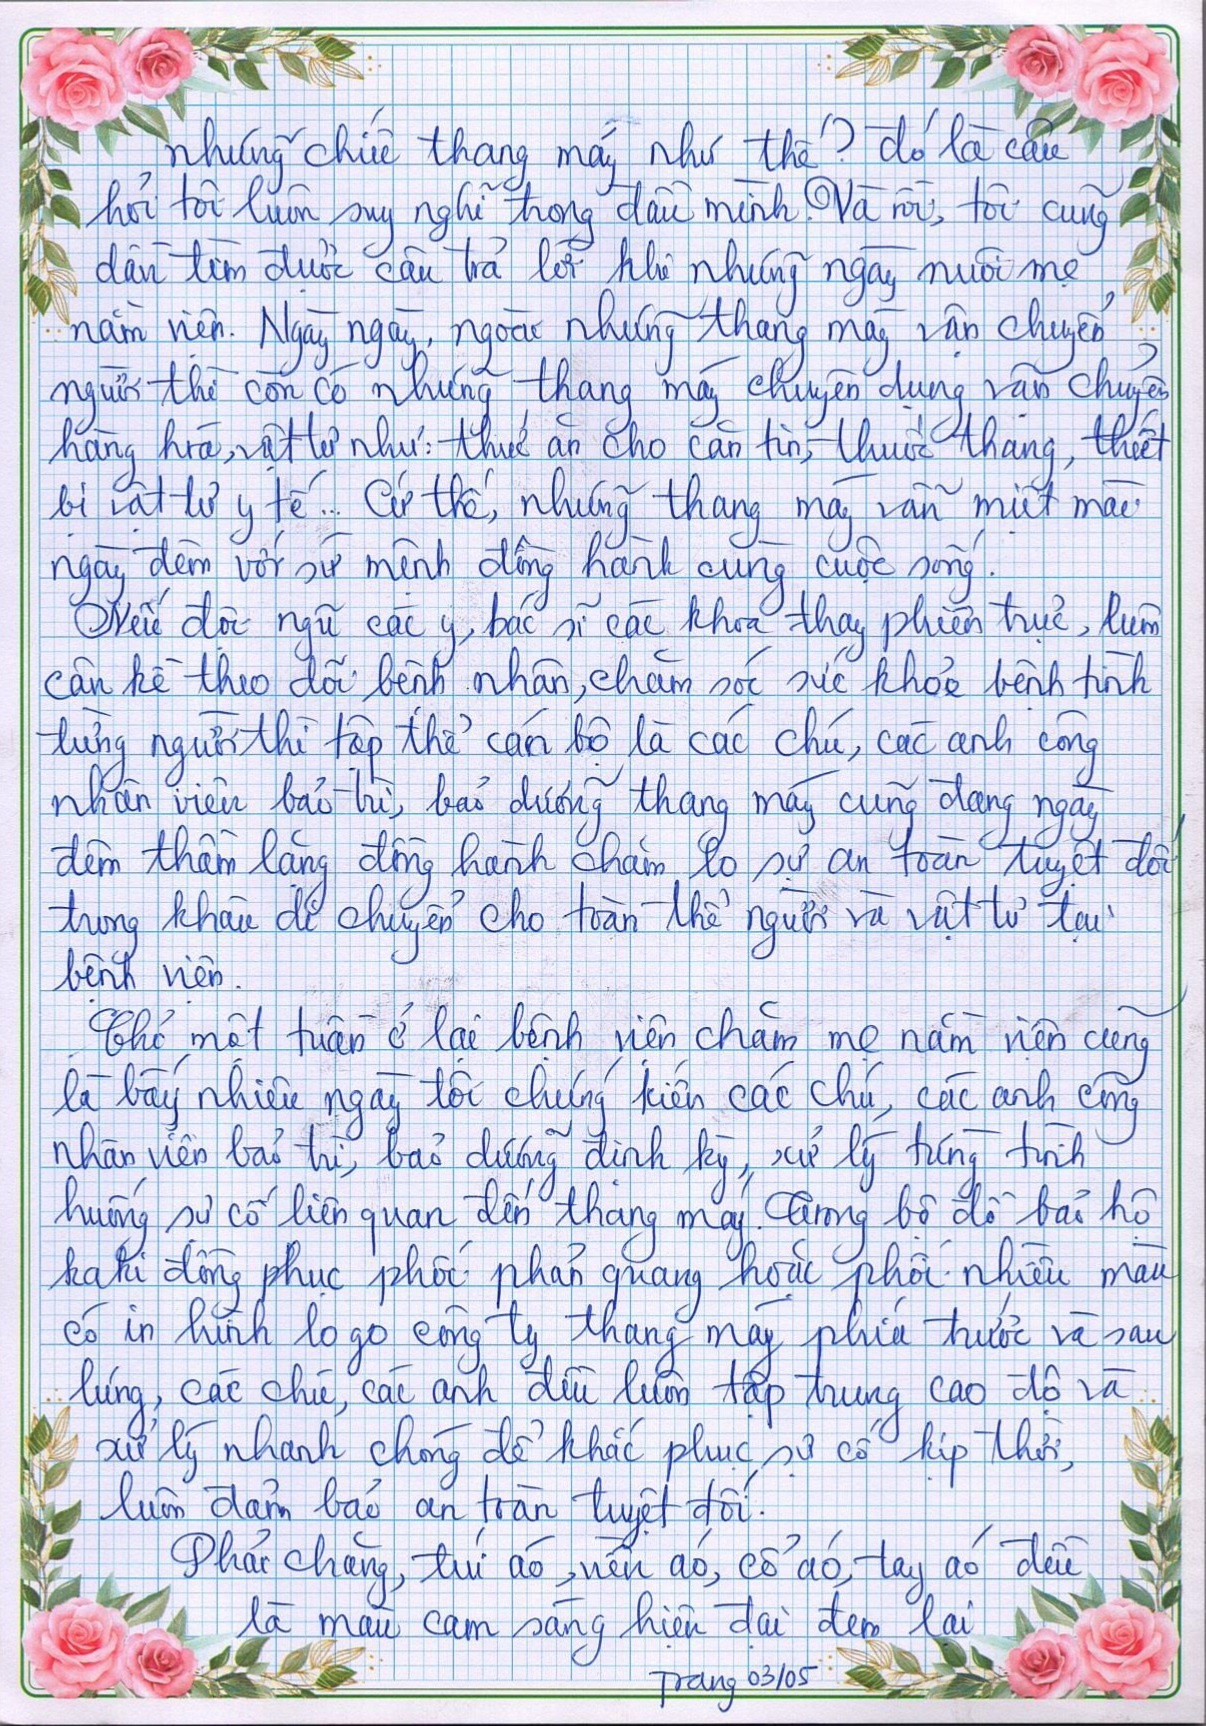 những chiếc thang máy như thế? đó là câu
hỏi tôi luôn suy nghĩ trong đầu mình. Và rồi, tôi cũng
dần tìm được câu trả lời khi những ngày nuôi mẹ
nằm viện. Ngày ngày, ngoài những thang máy vận chuyển
người thì còn có những thang máy chuyên dụng vận chuyển
hàng hoá, vật tư như: thức ăn cho căn tin, thuốc thang, thiết
bị vật tư y tế... Cứ thế, những thang máy vẫn miệt mài
ngày đêm với sứ mệnh đồng hành cùng cuộc sống.
Nếu đội ngũ các y, bác sĩ các khoa thay phiên trực, luôn
cận kề theo dõi bệnh nhân, chăm sóc sức khoẻ bệnh tình
từng người thì tập thể cán bộ là các chú, các anh công
nhân viên bảo trì, bảo dưỡng thang máy cũng đang ngày
đêm thầm lặng đồng hành chăm lo sự an toàn tuyệt đối
trong khâu di chuyển cho toàn thể người và vật tư tại
bệnh viện.
Chỉ một tuần ở lại bệnh viện chăm mẹ nằm viện cũng
là bấy nhiêu ngày tôi chứng kiến các chú, các anh công
nhân viên bảo trì, bảo dưỡng định kỳ, xử lý từng tình
huống sự cố liên quan đến thang máy. Trong bộ đồ bảo hộ
kaki đồng phục phối phản quang hoặc phối nhiều màu
có in hình logo công ty thang máy phía trước và sau
lưng, các chú, các anh đều luôn tập trung cao độ và
xử lý nhanh chóng để khắc phục sự cố kịp thời,
luôn đảm bảo an toàn tuyệt đối.
Phải chăng, túi áo, viền áo, cổ áo, tay áo đều
là màu cam sáng hiện đại đem lại
Trang 03/05